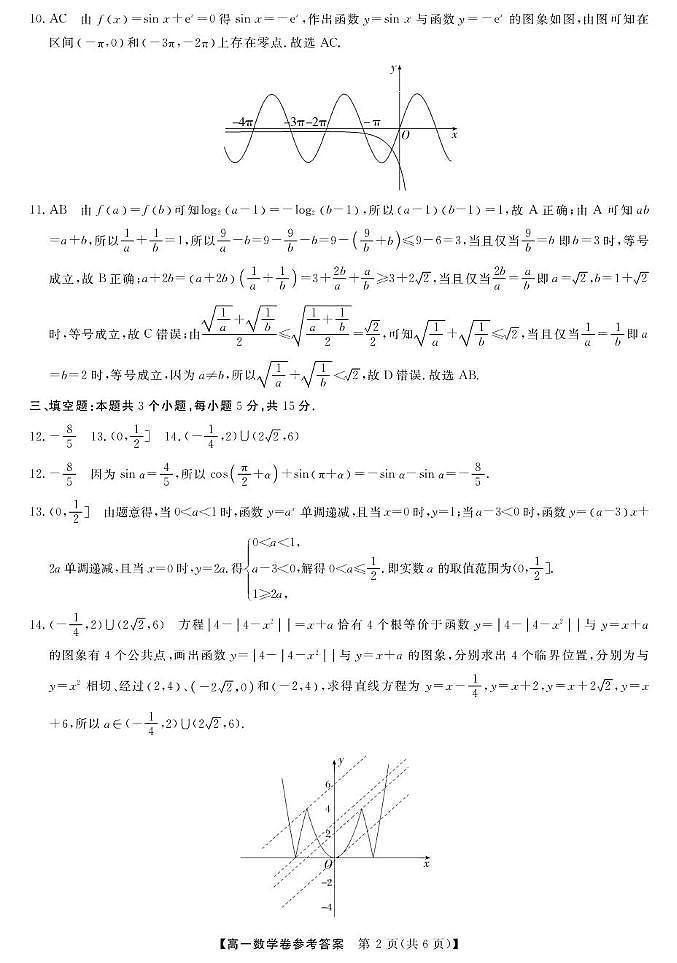 10. AC 由 f(x)=sin x+eˣ=0 得 sin x=-eˣ,作出函数 y=sin x 与函数 y=-eˣ 的图象如图,由图可知在
区间(-π,0)和(-3π,-2π)上存在零点.故选 AC.
y
-4π -3π -2π -π O x
11. AB 由 f(a)=f(b)可知log₂(a-1)=-log₂(b-1),所以(a-1)(b-1)=1,故 A 正确;由 A 可知 ab
=a+b,所以1/a+1/b=1,所以9/a-b=9-9/b-b=9-(9/b+b)≤9-6=3,当且仅当9/b=b 即b=3 时,等号
成立,故 B正确;a+2b=(a+2b)(1/a+1/b)=3+2b/a+a/b≥3+2√2,当且仅当2b/a=a/b即a=√2,b=1+√2
时,等号成立,故 C 错误;由(√(1/a)+√(1/b))/2≤√((1/a+1/b)/2)=√2/2,可知√(1/a)+√(1/b)≤√2,当且仅当1/a=1/b即a
=b=2 时,等号成立,因为 a≠b,所以√(1/a)+√(1/b)<√2,故 D错误.故选 AB.
三、填空题:本题共 3 个小题,每小题 5 分,共 15 分.
12. -8/5 13. (0,1/2] 14. (-1/4,2)∪(2√2,6)
12. -8/5 因为 sin α=4/5,所以 cos(π/2+α)+sin(π+α)=-sin α-sin α=-8/5.
13. (0,1/2] 由题意得,当 0<a<1 时,函数 y=aˣ 单调递减,且当 x=0 时,y=1;当 a-3<0 时,函数 y=(a-3)x+
2a 单调递减,且当 x=0 时,y=2a.得{0<a<1, a-3<0, 1≥2a,解得 0<a≤1/2.即实数 a 的取值范围为(0,1/2].
14. (-1/4,2)∪(2√2,6) 方程|4-|4-x²||=x+a 恰有 4 个根等价于函数 y=|4-|4-x²||与 y=x+a
的图象有 4 个公共点,画出函数 y=|4-|4-x²||与 y=x+a 的图象,分别求出 4 个临界位置,分别为与
y=x² 相切、经过(2,4)、(-2√2,0)和(-2,4),求得直线方程为 y=x-1/4,y=x+2,y=x+2√2,y=x
+6,所以 a∈(-1/4,2)∪(2√2,6).
y
6
4
2
O x
-2
-4
【高一数学卷参考答案 第 2 页(共 6 页)】